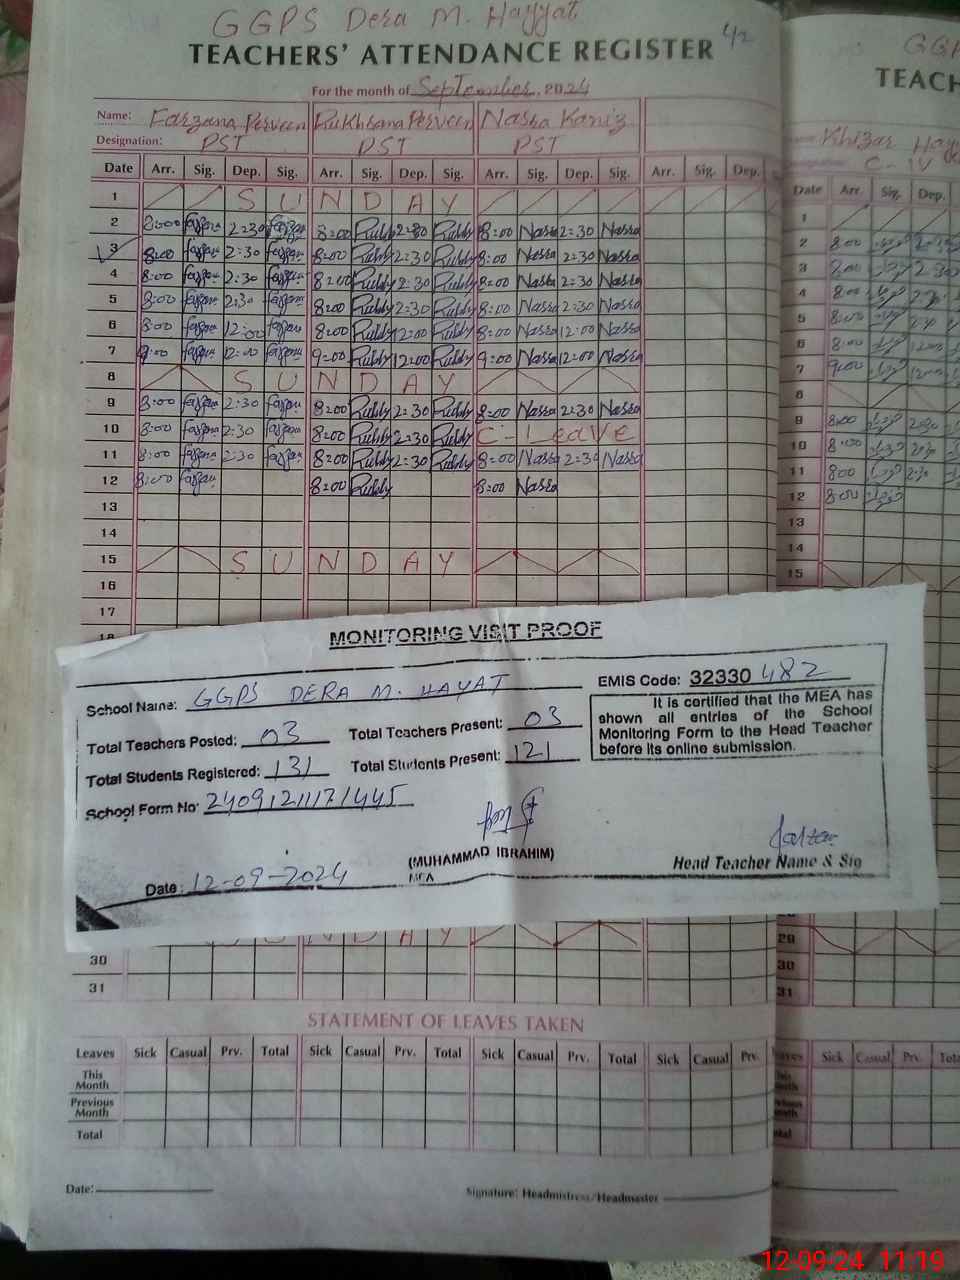 GGPS Dera M. Hayyat
42
TEACHERS' ATTENDANCE REGISTER
For the month of September, 2024
Name: Farzana Perveen Rukhsana Perveen Nasra Kaniz
Designation: PST PST PST
Date Arr. Sig. Dep. Sig. Arr. Sig. Dep. Sig. Arr. Sig. Dep. Sig. Arr. Sig. Dep.
1 S U N D A Y
2 8:00 2:30 8:00 Rubby 2:30 Rubby 8:00 Nasra 2:30 Nasra
3 8:00 2:30 8:00 Rubby 2:30 Rubby 8:00 Nasra 2:30 Nasra
4 8:00 2:30 8:00 Rubby 2:30 Rubby 8:00 Nasra 2:30 Nasra
5 8:00 2:30 8:00 Rubby 2:30 Rubby 8:00 Nasra 2:30 Nasra
6 8:00 12:00 8:00 Rubby 12:00 Rubby 8:00 Nasra 12:00 Nasra
7 9:00 12:00 9:00 Rubby 12:00 Rubby 9:00 Nasra 12:00 Nasra
8 S U N D A Y
9 8:00 2:30 8:00 Rubby 2:30 Rubby 8:00 Nasra 2:30 Nasra
10 8:00 2:30 8:00 Rubby 2:30 Rubby C-Leave
11 8:00 2:30 8:00 Rubby 2:30 Rubby 8:00 Nasra 2:30 Nasra
12 8:00 8:00 Rubby 8:00 Nasra
13
14
15 S U N D A Y
16
17
18
MONITORING VISIT PROOF
School Name: GGPS DERA M. HAYAT
EMIS Code: 32330 482
Total Teachers Posted: 03 Total Teachers Present: 03
Total Students Registered: 131 Total Students Present: 121
It is certified that the MEA has
shown all entries of the School
Monitoring Form to the Head Teacher
before its online submission.
School Form No: 24091211171445
(MUHAMMAD IBRAHIM)
MEA
Head Teacher Name & Sig
Date: 12-09-2024
N D A Y
30
31
STATEMENT OF LEAVES TAKEN
Leaves Sick Casual Prv. Total Sick Casual Prv. Total Sick Casual Prv. Total Sick Casual Prv.
This Month
Previous Month
Total
Date:
Signature: Headmistress/Headmaster
TEACH
Khizar Hay
C-IV
Date Arr. Sig. Dep.
1
2 8:00
3 8:00 2:30
4 8:00
5 8:00
6 8:00
7 9:00
8
9 8:00
10 8:00
11 8:00
12 8:00
13
14
15
29
30
31
Sick Casual Prv.
12-09-24 11:19